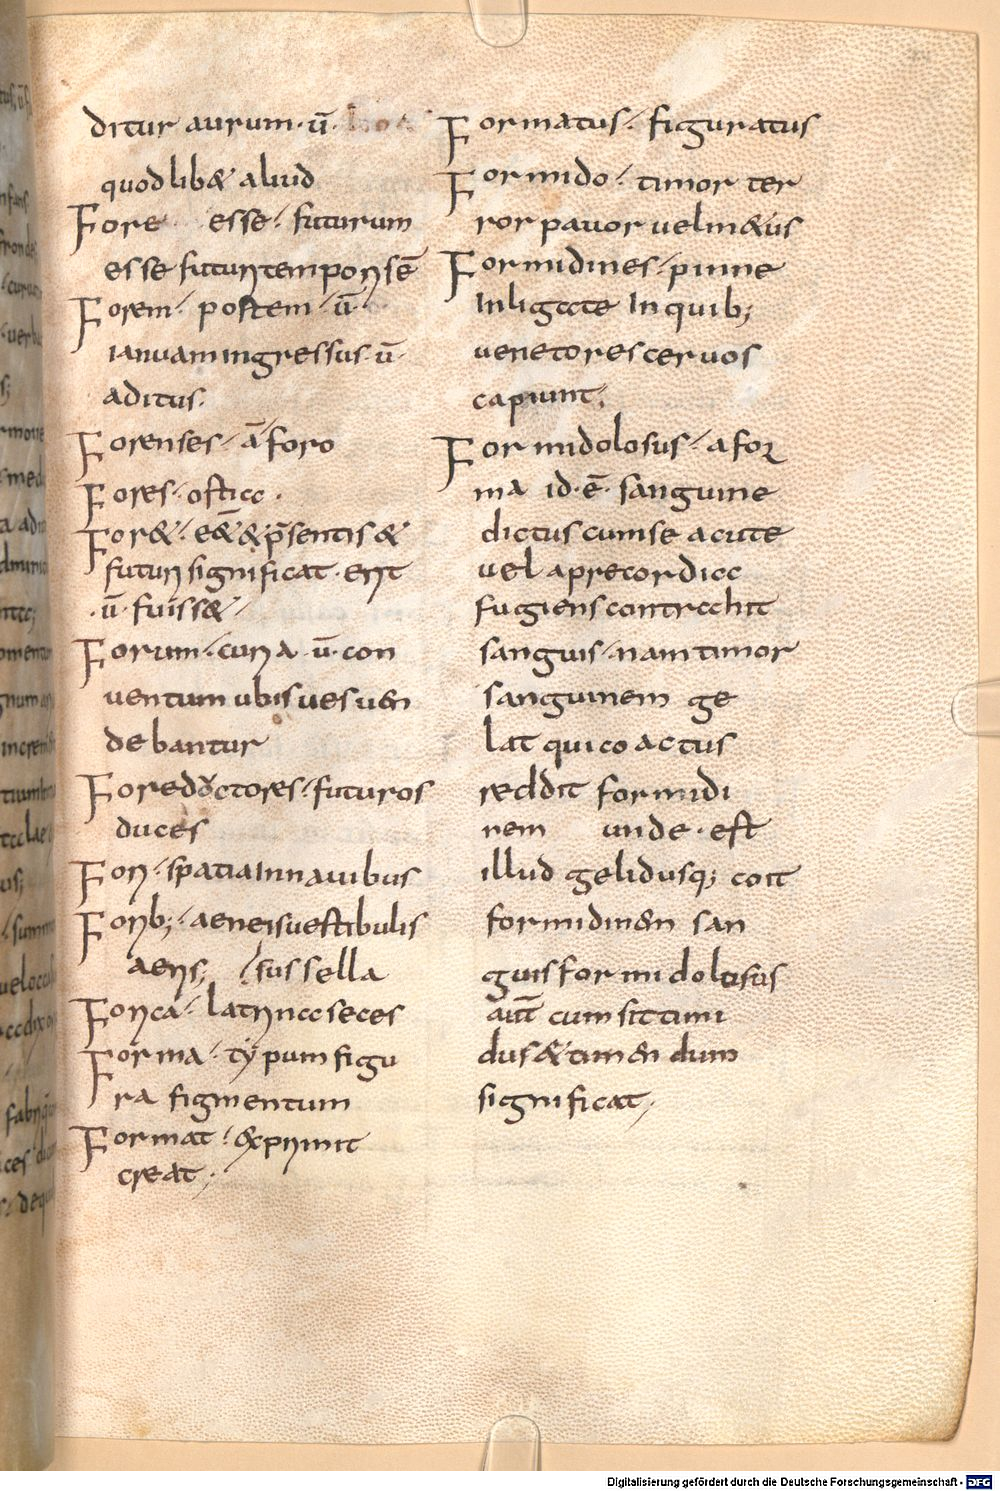 ditur aurum· ū·
quod lib& aliud
Fore esse· futurum
esse futuri temporis ēē
Forem· postem· ū·
ianuam ingressus· ū·
aditus·
Forenses· ā foro
Fores· ostia·
For&· e&̄ & p̄sentis &
futuri significat· erit
·ū· fuiss&·
Forum· curia· ū· con
uentum ubi suesuen
debantur
Foredoctores· futuros
duces
Fori· spatia in nauibus
Forib;· aeneis uestibulis
aeris; / sus sella
Forica· latrina seces
Forma· typum figu
ra figmentum
Format· exprimit
creat;
Formatus· figuratus
Formido· timor ter
ror pauor uel m&us
Formidines· pinne
inligate in quib;
uenatores ceruos
capiunt;
Formidolosus· a for
ma id·ē· sanguine
dictus cum se a cute
uel a precordia
fugiens contrahit
sanguis· nam timor
sanguinem ge
lat qui coactus
reddit formidi
nem unde· est
illud gelidusq; coit
formidine san
guis formidolosus
aut̄ cum sit timi
dus & timendum
significat;
Digitalisierung gefördert durch die Deutsche Forschungsgemeinschaft - DFG